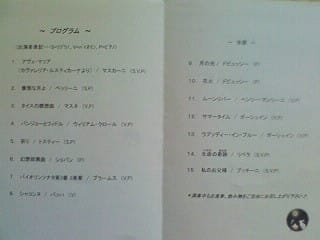 ～ プログラム ～
1 アヴェ・マリア
(カヴァレリア・ルスティカーナより) / マスカーニ (S.V.P)
2 優雅な月よ / ベッリーニ (S.P)
3 タイスの瞑想曲 / マスネ (V.P)
4 バンジョーとフィドル / ウィリアム・クロール (V.P)
5 祈り / トスティー (S.P)
6 幻想即興曲 / ショパン (P)
7 バイオリンソナタ第3番 / ブラームス (V.P)
8 シャコンヌ / バッハ (V)
～ 休憩 ～
9 月の光 / ドビュッシー (P)
10 花火 / ドビュッシー (P)
11 ムーンリバー / ヘンリー・マンシーニ (V.P)
12 サマータイム / ガーシュイン (V.P)
13 ラプソディー・イン・ブルー / ガーシュイン (P)
14 生命の奇跡 / (S.V.P)
15 私のお父様 / プッチーニ (S.V.P)